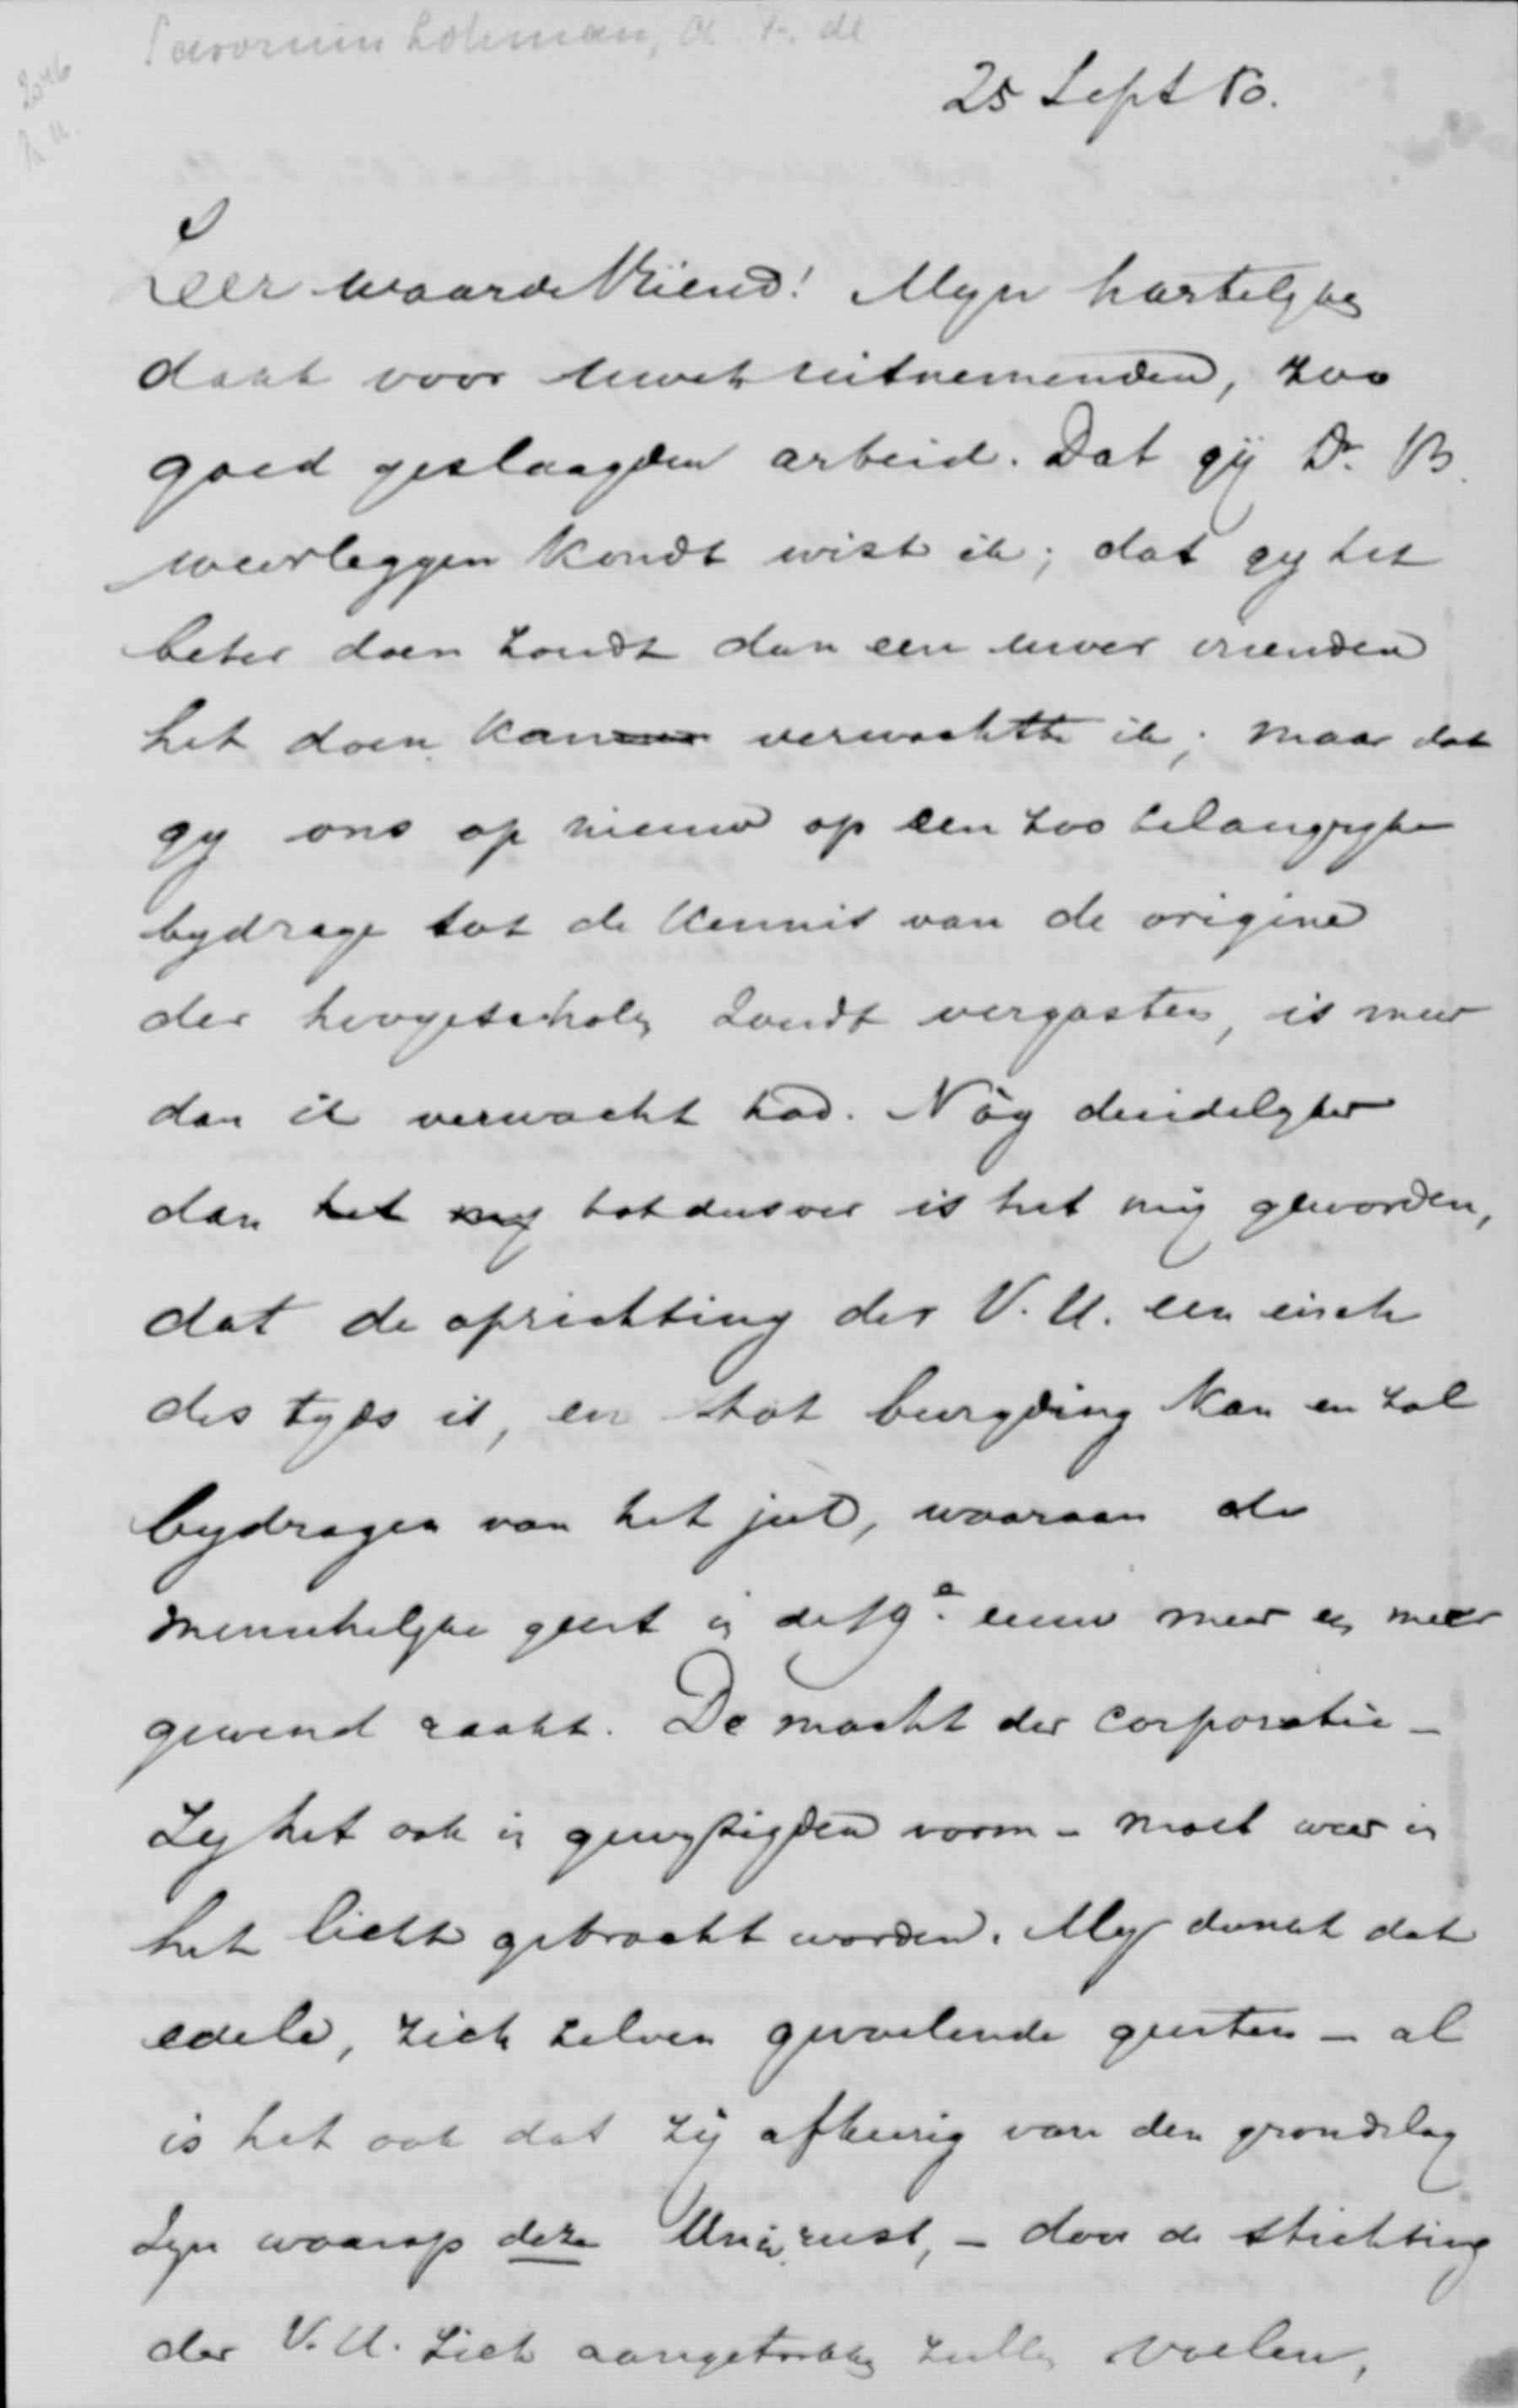 Savornin Lohman, A. F. de
25 Sept 80.
Zeer waarde Vriend! Myn hartelyke
dank voor uwen uitnemenden, zoo
goed geslaagden arbeid. Dat gij Dr. B.
weerleggen kondt wist ik; dat gy het
beter doen zoudt dan een uwer vrienden
het doen kan verwachtte ik; maar dat
gy ons op nieuw op een zoo belangryke
bydrage tot de kennis van de origine
der hoogescholen zoudt vergasten, is meer
dan ik verwacht had. Nòg duidelyker
dan het my totdusver is het mij geworden,
dat de oprichting der V. U. een eisch
des tyds is, en tot bevryding kan en zal
bydragen van het juk, waaraan de
menschelyke geest in de 19e eeuw meer en meer
gewend raakt. De macht der corporatie -
zy het ook in gewyzigden vorm - moet weer in
het licht gebracht worden. My dunkt dat
edele, zich zelven gevoelende geesten - al
is het ook dat zij afkeerig van den grondslag
zyn waarop deze Univ. rust, - door de stichting
der V. U. zich aangetrokken zullen voelen,